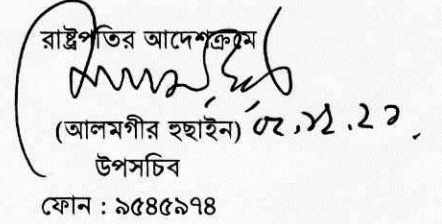 রাষ্ট্রপতির আদেশক্রমে
(আলমগীর হুছাইন)
উপসচিব
ফোন : ৯৫৪৫৯৭৪